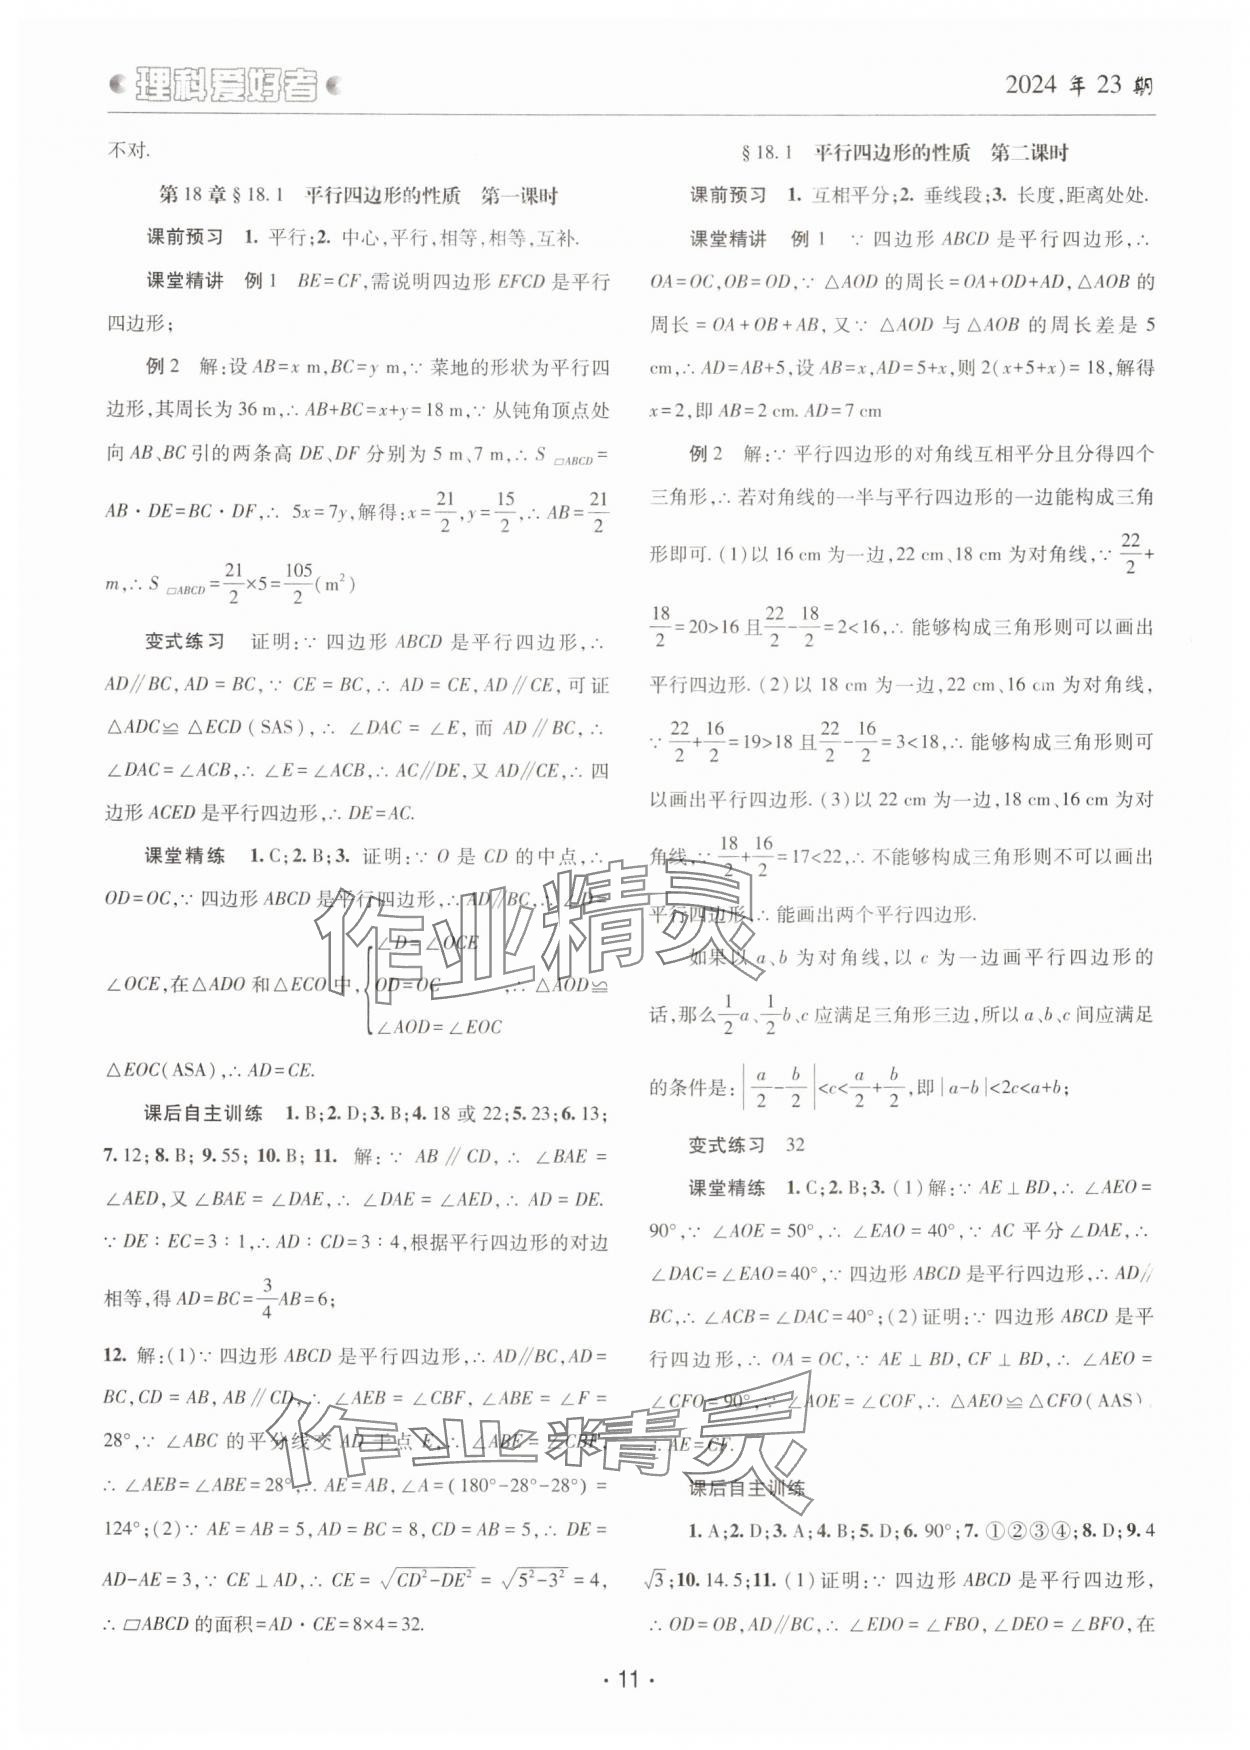 理科爱好者
2024 年 23 期
不对.
第 18 章 § 18. 1 平行四边形的性质 第一课时
课前预习 1. 平行;2. 中心,平行,相等,相等,互补.
课堂精讲 例 1 BE=CF,需说明四边形 EFCD 是平行
四边形;
例 2 解:设 AB=x m,BC=y m,∵ 菜地的形状为平行四
边形,其周长为 36 m,∴ AB+BC=x+y=18 m,∵ 从钝角顶点处
向 AB、BC 引的两条高 DE、DF 分别为 5 m、7 m,∴ S ▱ABCD =
AB·DE=BC·DF,∴ 5x=7y,解得:x=21/2,y=15/2,∴ AB=21/2
m,∴ S ▱ABCD =21/2×5=105/2(m²)
变式练习 证明:∵ 四边形 ABCD 是平行四边形,∴
AD∥BC,AD=BC,∵ CE=BC,∴ AD=CE,AD∥CE,可证
△ADC≌△ECD(SAS),∴ ∠DAC=∠E,而 AD∥BC,∴
∠DAC=∠ACB,∴ ∠E=∠ACB,∴ AC∥DE,又 AD∥CE,∴ 四
边形 ACED 是平行四边形,∴ DE=AC.
课堂精练 1. C;2. B;3. 证明:∵ O 是 CD 的中点,∴
OD=OC,∵ 四边形 ABCD 是平行四边形,∴ AD∥BC,∴ ∠D=
∠OCE,在△ADO 和△ECO 中,{∠D=∠OCE
OD=OC
∠AOD=∠EOC
,∴ △AOD≌
△EOC(ASA),∴ AD=CE.
课后自主训练 1. B;2. D;3. B;4. 18 或 22;5. 23;6. 13;
7. 12;8. B;9. 55;10. B;11. 解:∵ AB∥CD,∴ ∠BAE=
∠AED,又∠BAE=∠DAE,∴ ∠DAE=∠AED,∴ AD=DE.
∵ DE∶EC=3∶1,∴ AD∶CD=3∶4,根据平行四边形的对边
相等,得 AD=BC=3/4AB=6;
12. 解:(1)∵ 四边形 ABCD 是平行四边形,∴ AD∥BC,AD=
BC,CD=AB,AB∥CD,∴ ∠AEB=∠CBF,∠ABE=∠F=
28°,∵ ∠ABC 的平分线交 AD 于点 E,∴ ∠ABE=∠CBF,
∴ ∠AEB=∠ABE=28°,∴ AE=AB,∠A=(180°-28°-28°)=
124°;(2)∵ AE=AB=5,AD=BC=8,CD=AB=5,∴ DE=
AD-AE=3,∵ CE⊥AD,∴ CE=√(CD²-DE²)=√(5²-3²)=4,
∴ ▱ABCD 的面积=AD·CE=8×4=32.
§ 18. 1 平行四边形的性质 第二课时
课前预习 1. 互相平分;2. 垂线段;3. 长度,距离处处.
课堂精讲 例 1 ∵ 四边形 ABCD 是平行四边形,∴
OA=OC,OB=OD,∵ △AOD 的周长=OA+OD+AD,△AOB 的
周长=OA+OB+AB,又∵ △AOD 与△AOB 的周长差是 5
cm,∴ AD=AB+5,设 AB=x,AD=5+x,则 2(x+5+x)=18,解得
x=2,即 AB=2 cm. AD=7 cm
例 2 解:∵ 平行四边形的对角线互相平分且分得四个
三角形,∴ 若对角线的一半与平行四边形的一边能构成三角
形即可. (1)以 16 cm 为一边,22 cm、18 cm 为对角线,∵ 22/2+
18/2=20>16 且 22/2-18/2=2<16,∴ 能够构成三角形则可以画出
平行四边形. (2)以 18 cm 为一边,22 cm、16 cm 为对角线,
∵ 22/2+16/2=19>18 且 22/2-16/2=3<18,∴ 能够构成三角形则可
以画出平行四边形. (3)以 22 cm 为一边,18 cm、16 cm 为对
角线,∵ 18/2+16/2=17<22,∴ 不能够构成三角形则不可以画出
平行四边形,∴ 能画出两个平行四边形.
如果以 a、b 为对角线,以 c 为一边画平行四边形的
话,那么 1/2a、1/2b、c 应满足三角形三边,所以 a、b、c 间应满足
的条件是:|a/2-b/2|<c<a/2+b/2,即|a-b|<2c<a+b;
变式练习 32
课堂精练 1. C;2. B;3. (1)解:∵ AE⊥BD,∴ ∠AEO=
90°,∵ ∠AOE=50°,∴ ∠EAO=40°,∵ AC 平分∠DAE,∴
∠DAC=∠EAO=40°,∵ 四边形 ABCD 是平行四边形,∴ AD∥
BC,∴ ∠ACB=∠DAC=40°;(2)证明:∵ 四边形 ABCD 是平
行四边形,∴ OA=OC,∵ AE⊥BD,CF⊥BD,∴ ∠AEO=
∠CFO=90°,∵ ∠AOE=∠COF,∴ △AEO≌△CFO(AAS).
∴ AE=CF.
课后自主训练
1. A;2. D;3. A;4. B;5. D;6. 90°;7. ①②③④;8. D;9. 4
√3;10. 14. 5;11. (1)证明:∵ 四边形 ABCD 是平行四边形,
∴ OD=OB,AD∥BC,∴ ∠EDO=∠FBO,∠DEO=∠BFO,在
· 11 ·
作业精灵
作业精灵